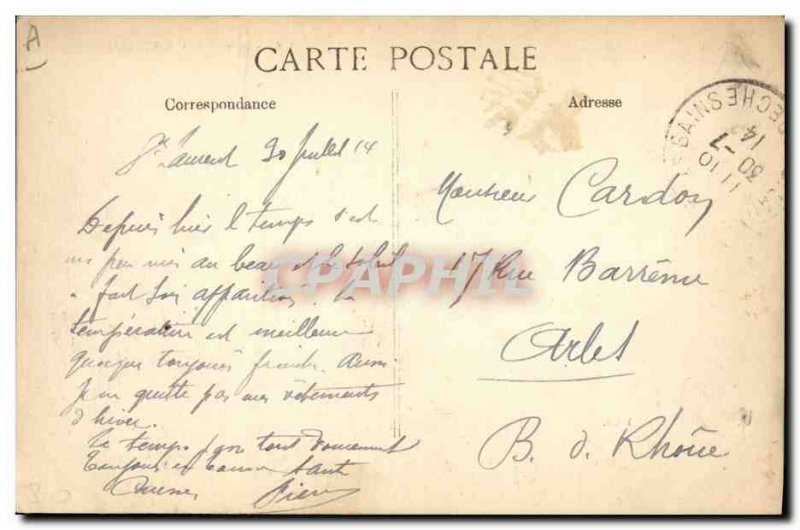 A
CARTE POSTALE
Correspondance
Adresse
St Laurent 30 Juillet 14
Depuis hier le temps s'est
un peu mis au beau et le soleil
a fait son apparition. La
température est meilleure
quoique toujours fraiche. Aussi
je ne quitte pas mes vêtements
d'hiver.
Le temps passe tout doucement
Toujours en bonne santé
Pierre
Monsieur Cardon
17 Rue Barrême
Arles
B. d. Rhône
BAINS
11 10
30 -7
14
CPAPHIL